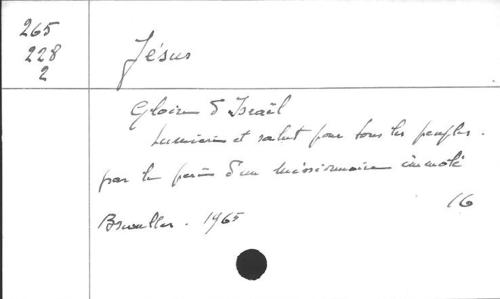 265
228
2
Jésus
Gloire d'Israël
Lumière et salut pour tous les peuples.
par le père d'un missionnaire immolé
16
Bruxelles. 1965